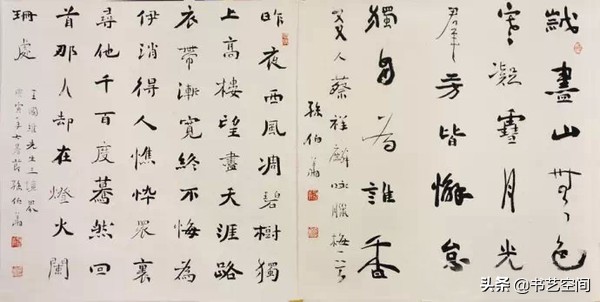 盡山無色
寒凝雪月光
群芳皆懈怠
獨自為誰香
人蔡程麟咏臘梅一首 孫伯翔
昨夜西風凋碧樹獨
上高樓望盡天涯路
衣帶漸寬終不悔為
伊消得人憔悴眾裏
尋他千百度驀然回
首那人却在燈火闌
珊處
王國維先生三境界
孫伯翔
头条 @书艺空间